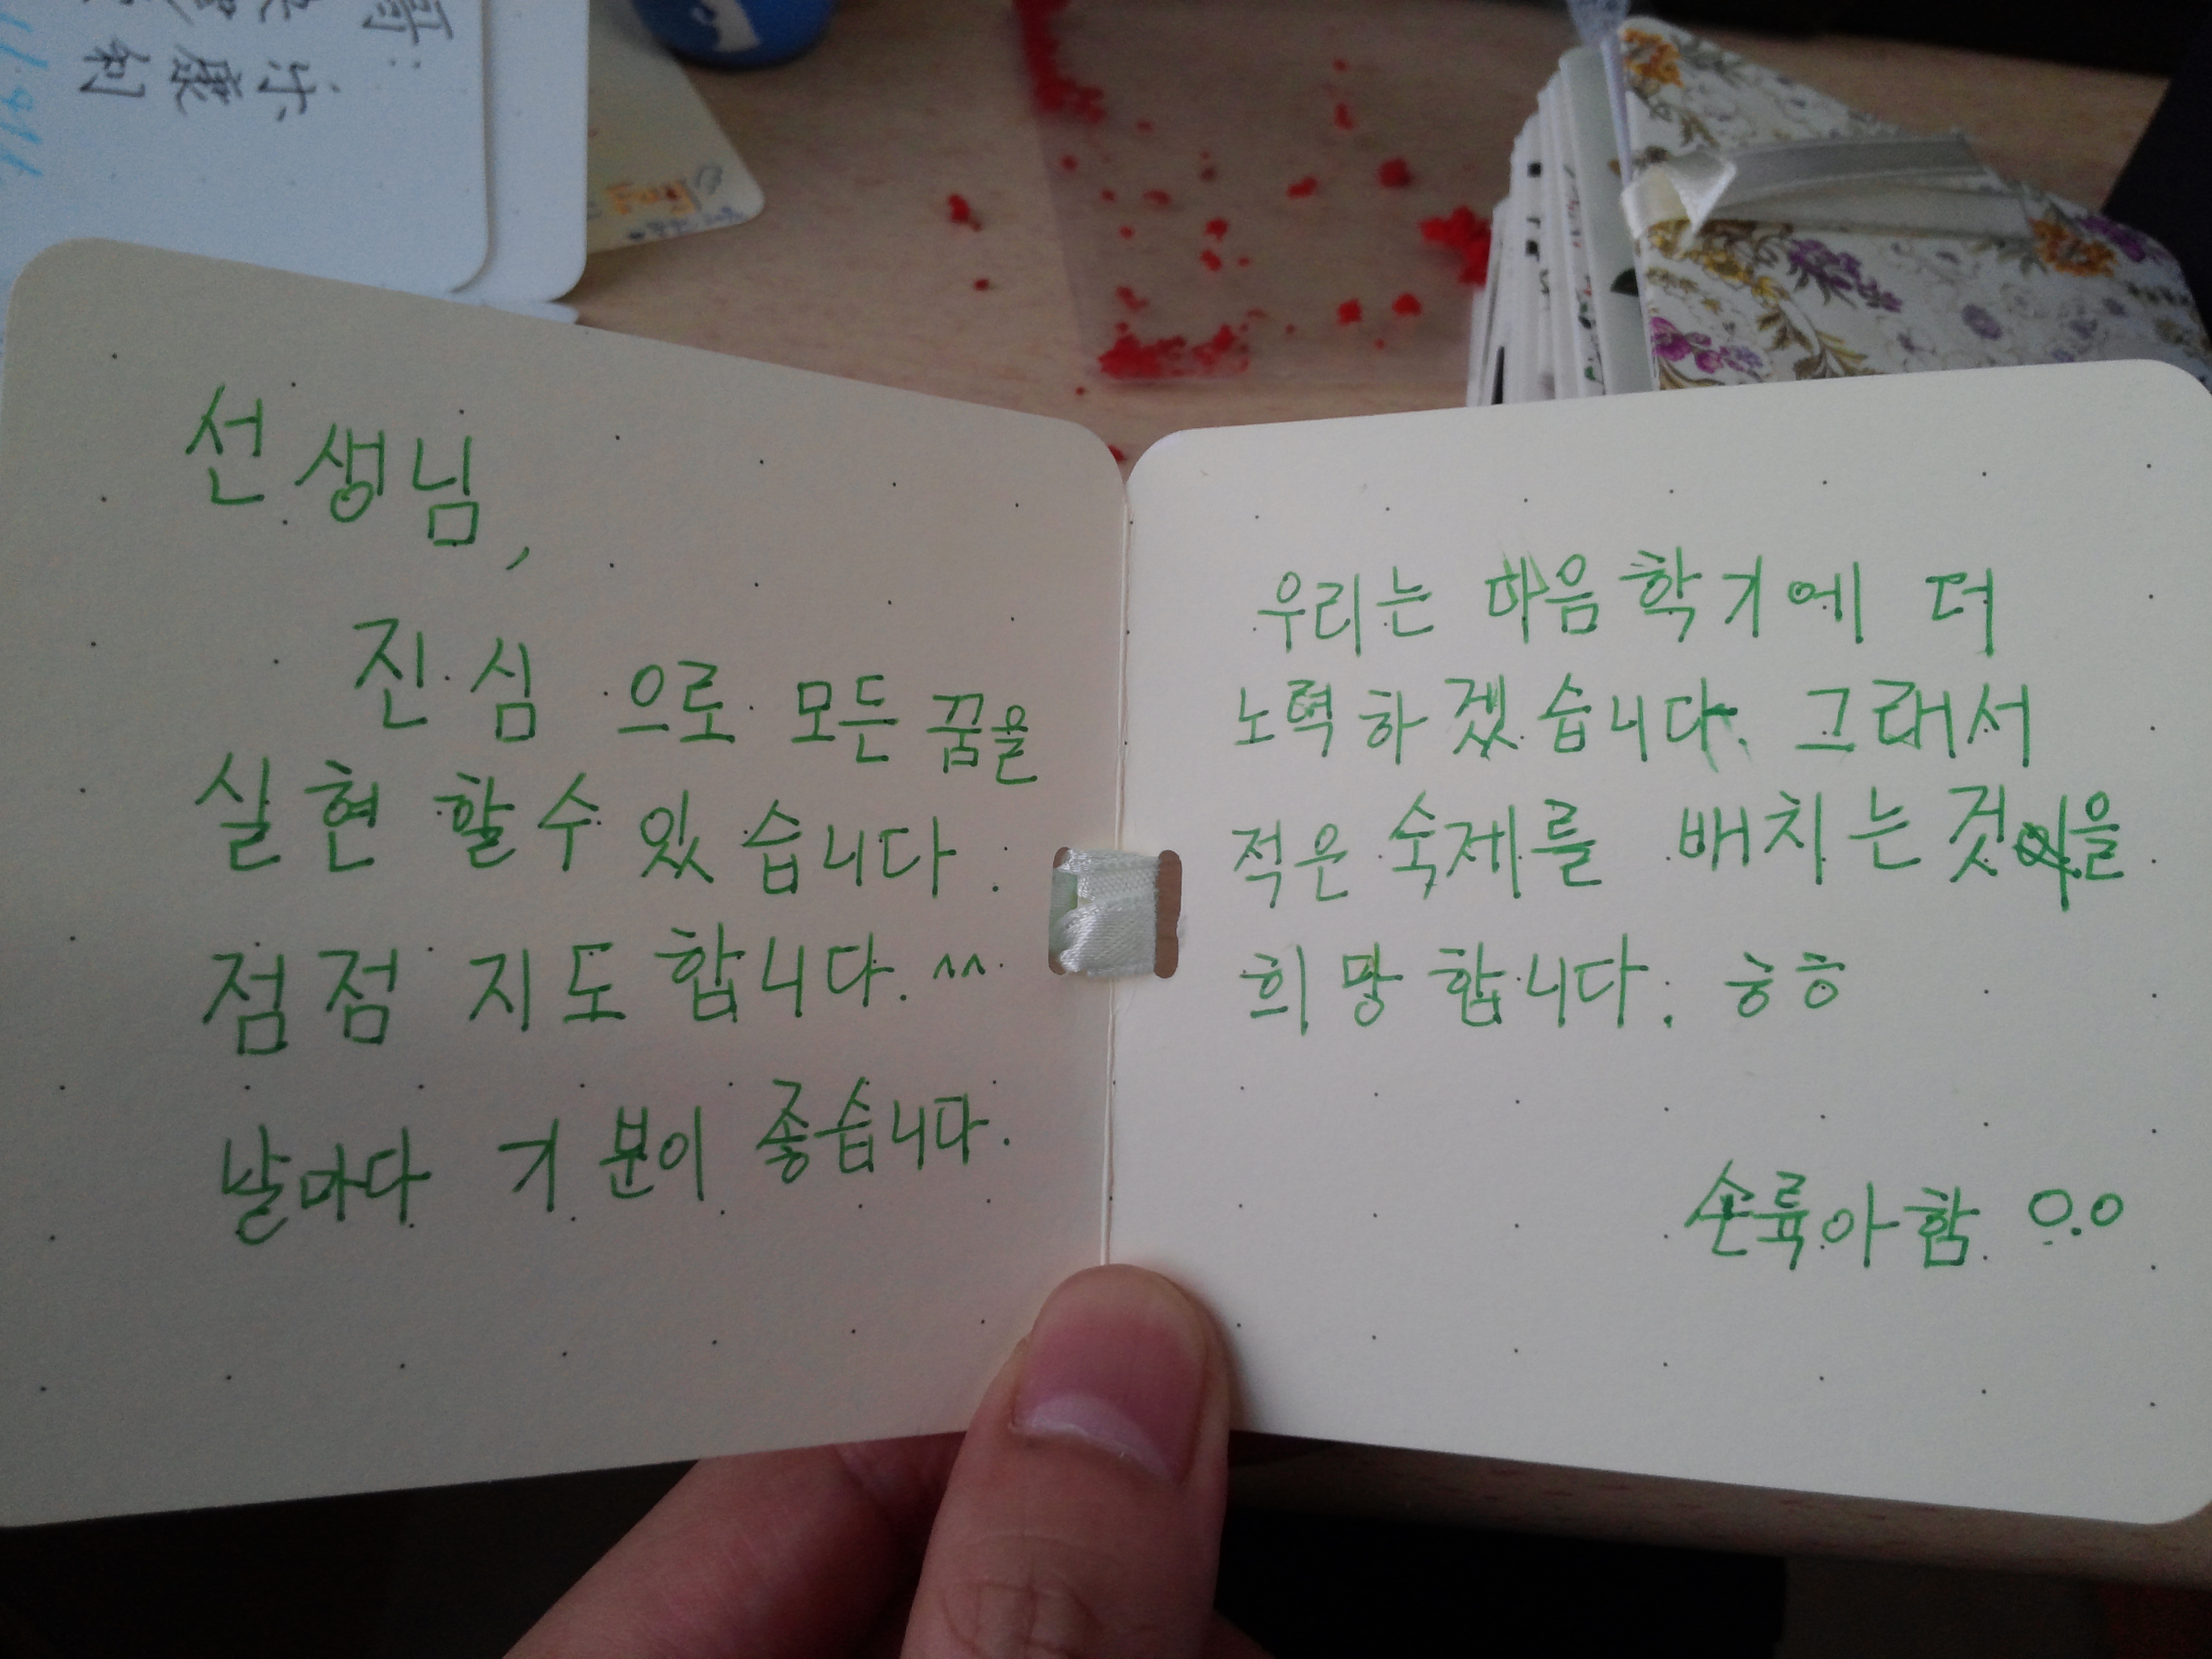 선생님,
진심으로 모든 꿈을
실현 할수 있습니다.
점점 지도 합니다. ^^
날마다 기분이 좋습니다.
우리는 다음 학기에 더
노력하겠습니다. 그래서
적은 숙제를 배치는 것을
희망합니다. ㅎㅎ
손륙아함 O.O